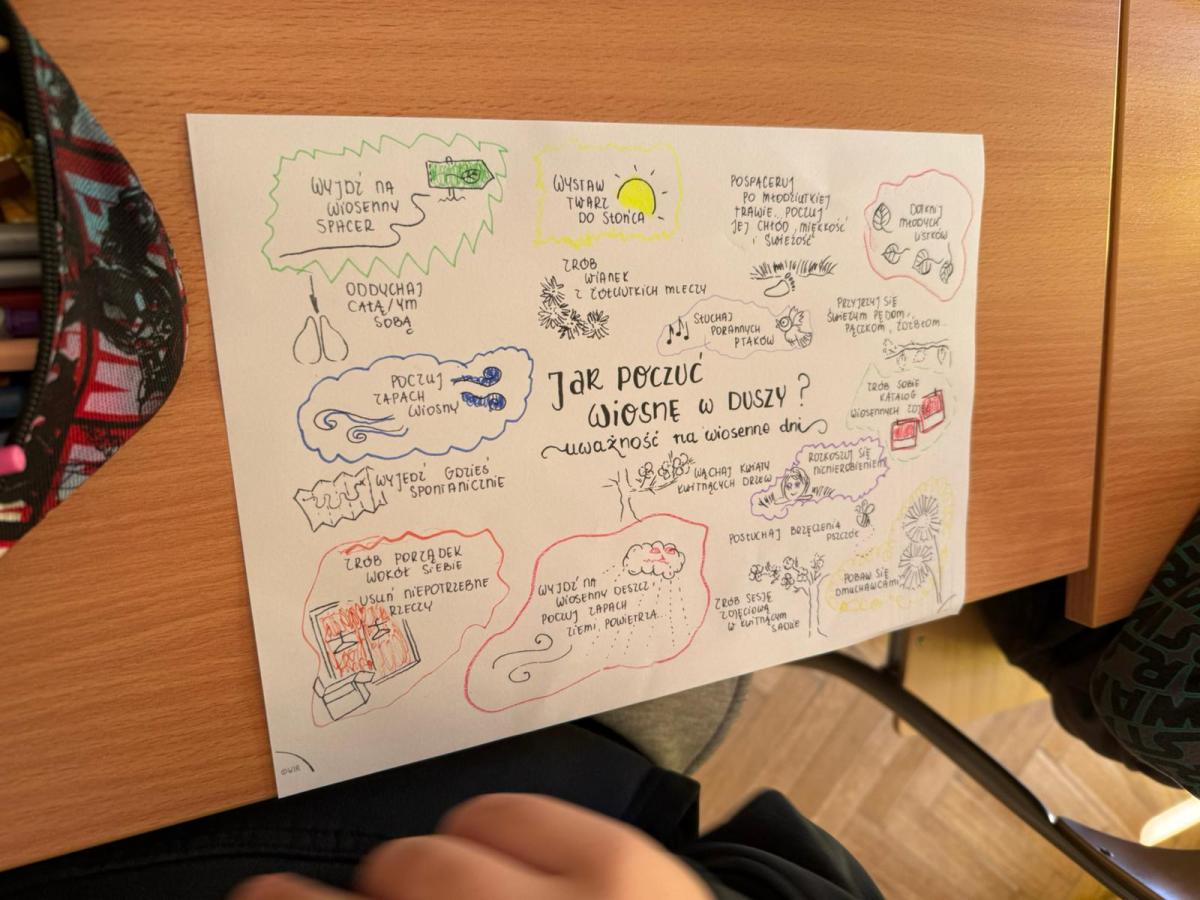 WYJDŹ NA
WIOSENNY
SPACER
WYSTAW
TWARZ
DO SŁOŃCA
POSPACERUJ
PO MŁODZIUTKIEJ
TRAWIE. POCZUJ
JEJ CHŁÓD, MIĘKKOŚĆ
I ŚWIEŻOŚĆ
DOTKNIJ
MŁODYCH
LISTKÓW
ODDYCHAJ
CAŁĄ/YM
SOBĄ
ZRÓB
WIANEK
Z ŻÓŁCIUTKICH MLECZY
SŁUCHAJ
PORANNYCH
PTAKÓW
PRZYJRZYJ SIĘ
ŚWIEŻYM PĘDOM,
PĄCZKOM, ŹDŹBŁOM...
POCZUJ
ZAPACH
WIOSNY
JAK POCZUĆ
WIOSNĘ W DUSZY?
uważność na wiosenne dni
ZRÓB SOBIE
KATALOG
WIOSENNYCH
WYJEDŹ GDZIEŚ
SPONTANICZNIE
WĄCHAJ KWIATY
KWITNĄCYCH DRZEW
ROZKOSZUJ SIĘ
NICNIEROBIENIEM
POSŁUCHAJ BRZĘCZENIA
PSZCZÓŁ
ZRÓB PORZĄDEK
WOKÓŁ SIEBIE
USUŃ NIEPOTRZEBNE
RZECZY
WYJDŹ NA
WIOSENNY DESZCZ.
POCZUJ ZAPACH
ZIEMI, POWIETRZA...
ZRÓB SESJĘ
ZDJĘCIOWĄ
W KWITNĄCYM
SADZIE
POBAW SIĘ
DMUCHAWCAMI
©WIR